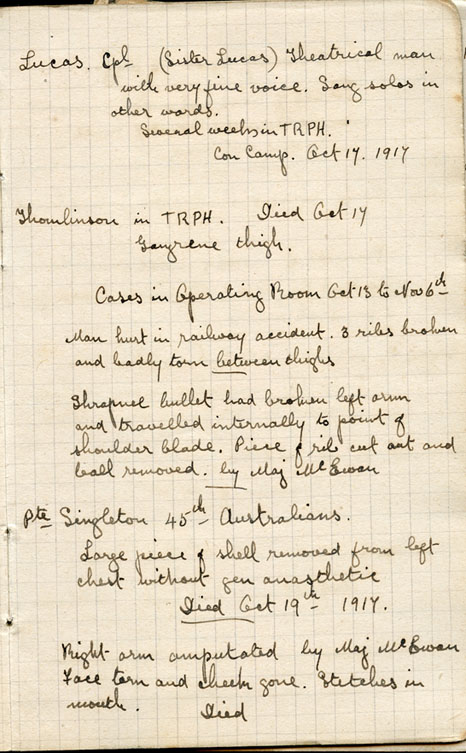 Lucas. Cpl (Sister Lucas) Theatrical man
with very fine voice. Sang solos in
other wards.
Several weeks in TRPH.
Con Camp. Oct 17. 1917
Thomlinson in TRPH. Died Oct 17
Gangrene thigh.
Cases in Operating Room Oct 13 to Nov 6th
Man hurt in railway accident. 3 ribs broken
and badly torn between thighs
Shrapnel bullet had broken left arm
and travelled internally to point of
shoulder blade. Piece of rib cut out and
ball removed. by Maj McEwan
Pte Singleton 45th Australians.
Large piece of shell removed from left
chest without gen anasthetic
Died Oct 19th 1917.
Right arm amputated by Maj McEwan
Face torn and cheek gone. Stetches in
mouth. Died